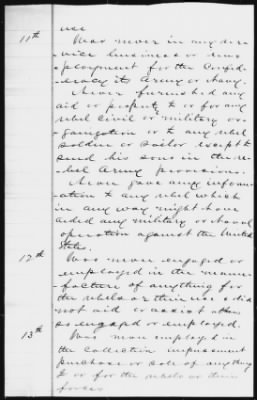 use
11th Was never in any ser-
vice business or em-
ployment for the Confed-
eracy its Army or Navy.
Never furnished any
aid or property to or for any
rebel civil or military or-
ganization or to any rebel
soldier or sailor except to
send his sons in the re-
bel Army provisions.
Never gave any inform-
ation to any rebel which
in any way might have
aided any military or naval
operation against the United
States.
12th Was never engaged or
employed in the manu-
facture of anything for
the rebels or their use & did
not aid or assist others
so engaged or employed.
13th Was never employed in
the collection impressment
purchase or sale of anything
to or for the rebels or their
forces